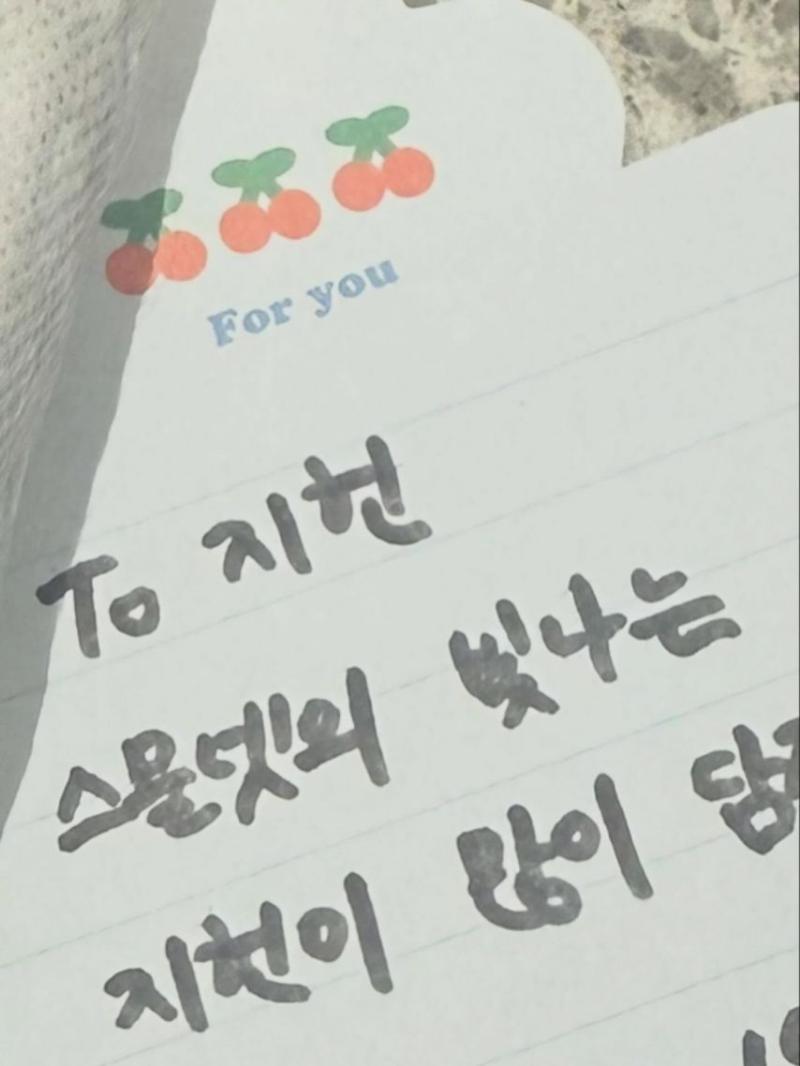 For you
To 지헌
스물넷의 빛나는
지헌이 많이